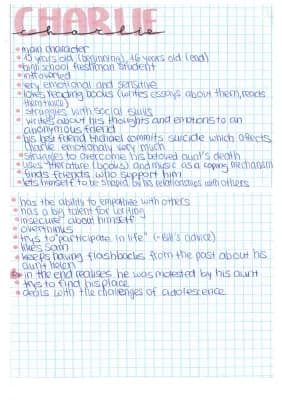 CHARLIE
charlie
• main character
• 15 years old (beginning), 16 years old (end)
• high school freshman student
• introverted
• very emotional and sensitive
• loves reading books (writes essays about them, reads
them twice)
• struggles with social skills
• writes about his thoughts and emotions to an
anonymous friend
• his best friend Michael commits suicide which affects
Charlie emotionally very much
• struggles to overcome his beloved aunt's death
• uses literature (books) and music as a coping mechanism
• finds friends who support him
• lets himself to be shaped by his relationships with others
• has the ability to empathise with others
• has a big talent for writing
• insecure about himself
• overthinks
• trys to "participate in life" (-Bill's advice)
• likes Sam
• keeps having flashbacks from the past about his
aunt Helen
• in the end realises he was molested by his aunt
• trys to find his place
• deals with the challenges of adolescence